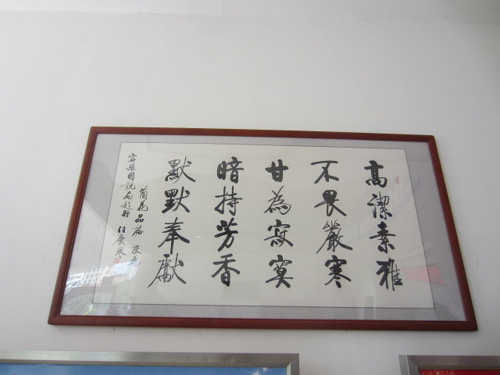 高潔素雅
不畏嚴寒
甘為寂寞
暗持芳香
默默奉獻
菊花品格